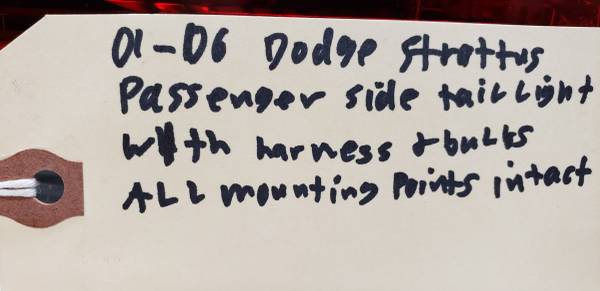 01-06 Dodge Strattus
Passenger side tail Light
With harness & bulbs
ALL mounting Points intact